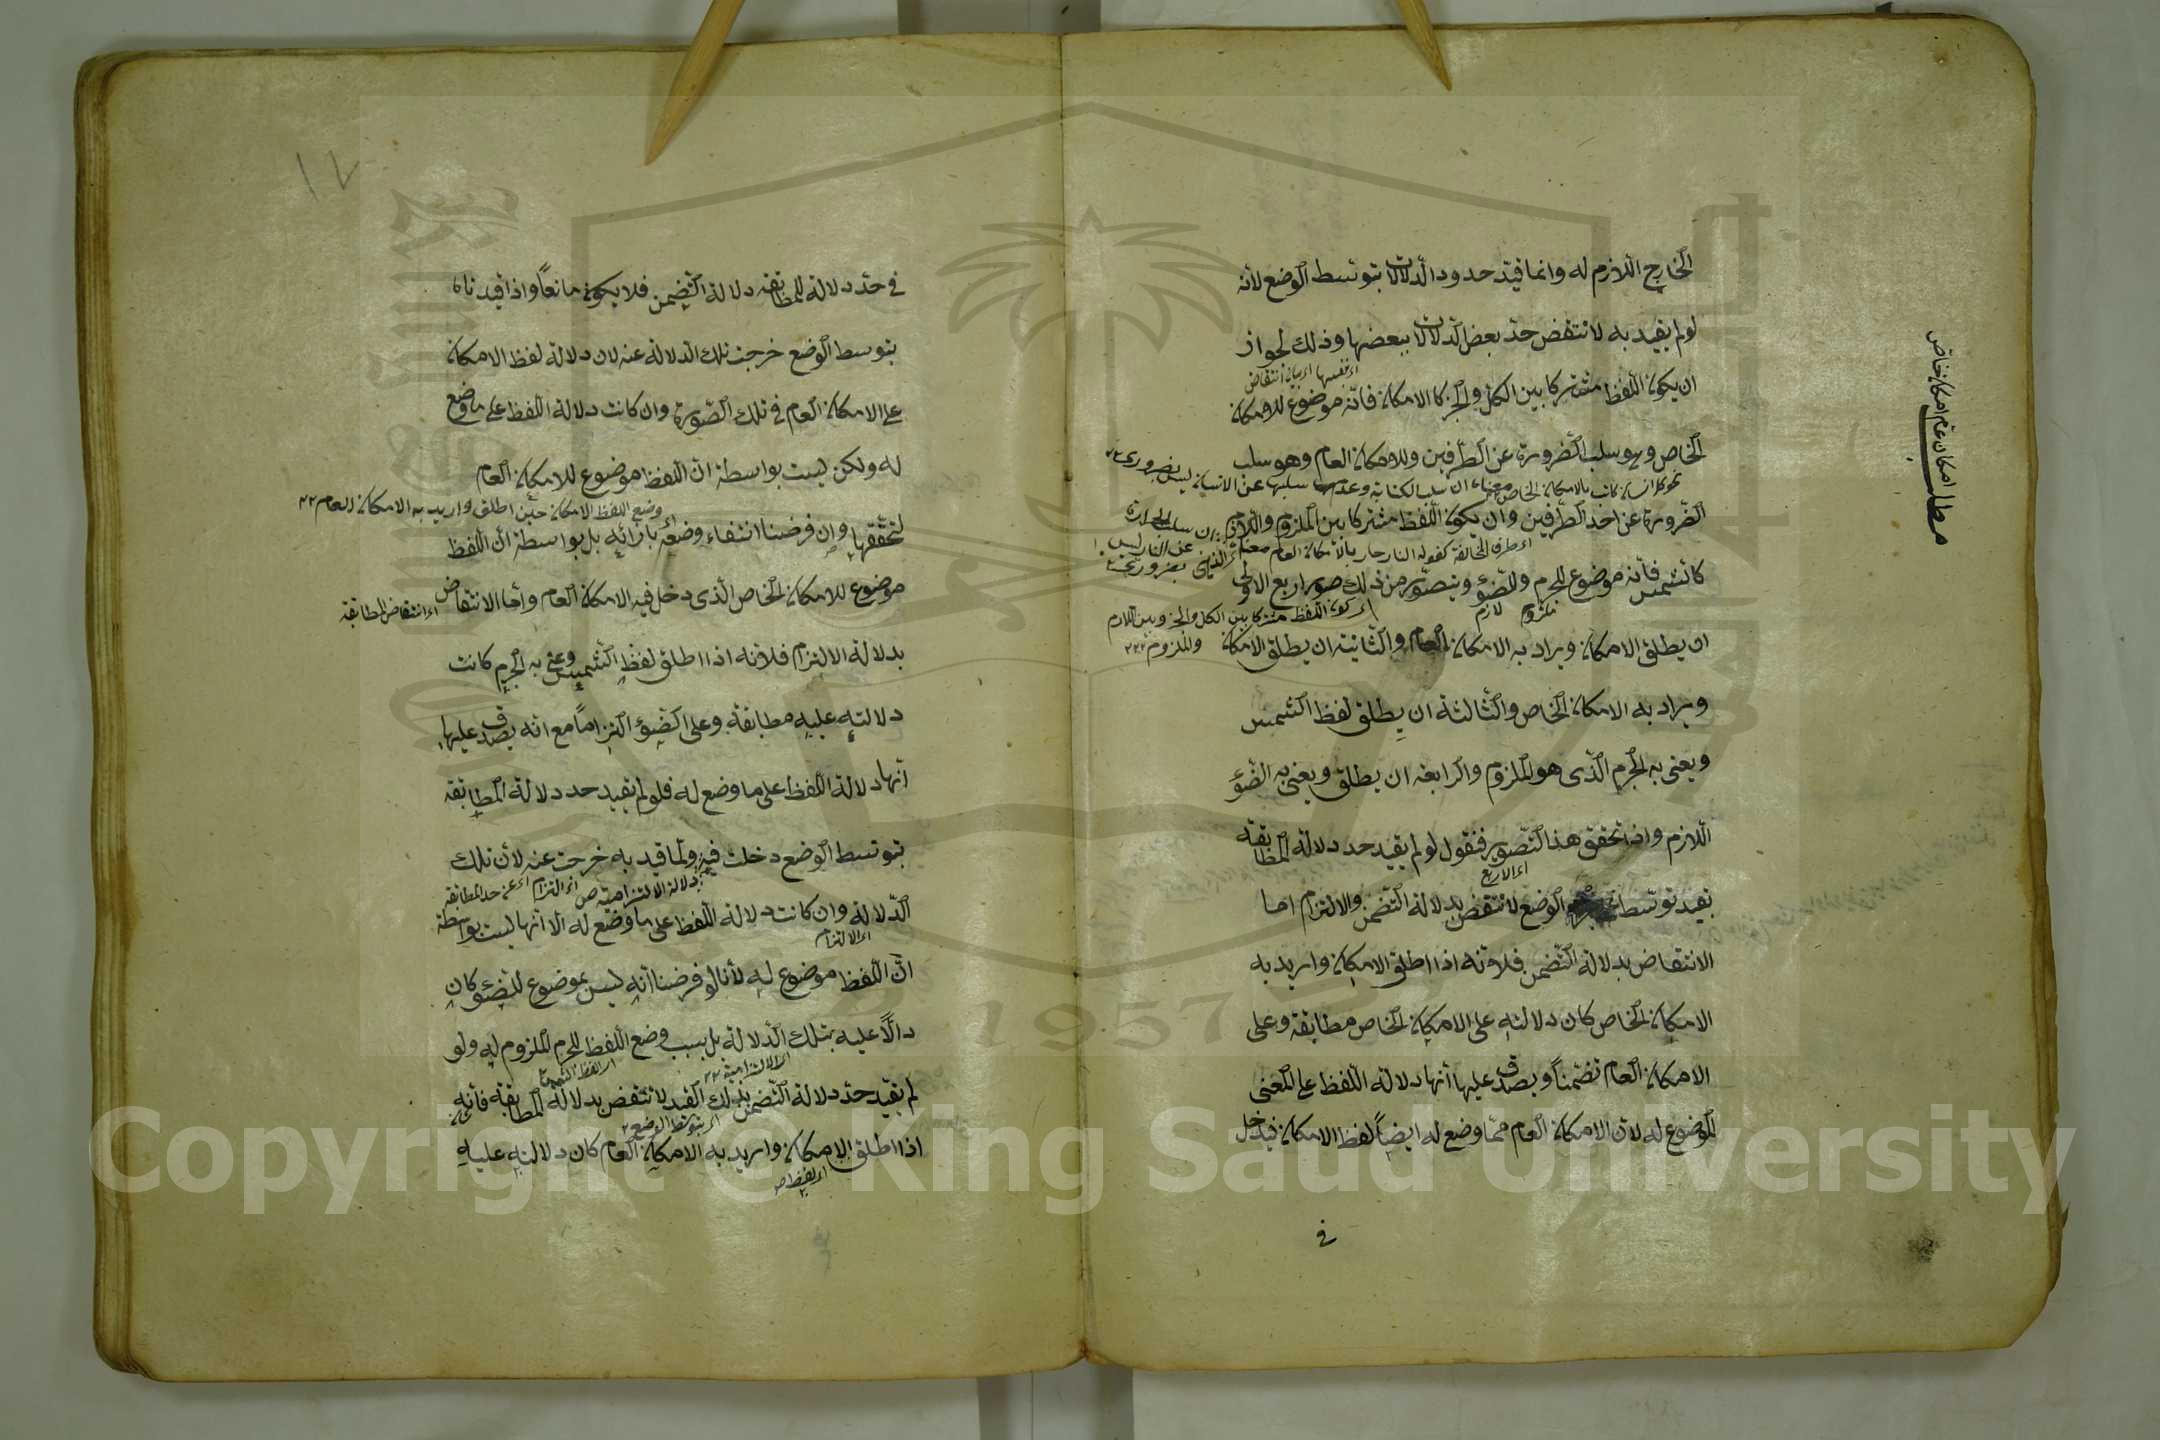 الخارج اللازم له وانما قيد حدود الدلالات بتوسط الوضع لأنه
لو لم يقيد به لانتقض حد بعض الدلالات ببعضها وذلك لجواز
ان يكون اللفظ مشتركا بين الكل والجزء كالامكان فانه موضوع للامكان
الخاص وهو سلب الضرورة عن الطرفين وللامكان العام وهو سلب
الضرورة عن احد الطرفين وان يكون اللفظ مشتركا بين الملزوم واللازم
كالشمس فانه موضوع للجرم وللضوء ويتصور من ذلك صور اربع الاولى
ملزوم لازم
اى كون اللفظ مشتركا بين الكل والجزء وبين اللازم
والملزوم
ان يطلق الامكان ويراد به الامكان العام والثانية ان يطلق الامكان
ويراد به الامكان الخاص والثالثة ان يطلق لفظ الشمس
ويعنى به الجرم الذى هو الملزوم والرابعة ان يطلق ويعنى به الضوء
اللازم واذا تحقق هذا التصوير فنقول لو لم يقيد حد دلالة المطابقة
اى الاربع
بقيد توسط الوضع لانتقض بدلالة التضمن والالتزام اما
الانتقاض بدلالة التضمن فلانه اذا اطلق الامكان واريد به
الامكان الخاص كان دلالته على الامكان الخاص مطابقة وعلى
الامكان العام تضمناً ويصدق عليها أنها دلالة اللفظ على المعنى
الموضوع له لان الامكان العام مما وضع له ايضاً لفظ الامكان فيدخل
فى
مطلب امكان عام امكان خاص
١٧
فى حد دلالة المطابقة دلالة التضمن فلا يكون مانعاً واذا قيدناه
بتوسط الوضع خرجت تلك الدلالة عنه لان دلالة لفظ الامكان
على الامكان العام فى تلك الصورة وان كانت دلالة اللفظ على ما وضع
له ولكن ليست بواسطة ان اللفظ موضوع للامكان العام
وضع اللفظ الامكان حين اطلق واريد به الامكان العام
لتحققها وان فرضنا انتفاء وضعه بازائه بل بواسطة ان اللفظ
موضوع للامكان الخاص الذى دخل فيه الامكان العام وأما الانتقاض
اى انتقاض المطابقة
بدلالة الالتزام فلانه اذا اطلق لفظ الشمس وعنى به الجرم كانت
دلالته عليه مطابقة وعلى الضوء التزاماً مع انه يصدق عليها
انها دلالة اللفظ على ما وضع له فلو لم يقيد حد دلالة المطابقة
بتوسط الوضع دخلت فيه ولما قيد به خرجت عنه لأن تلك
الدلالة وان كانت دلالة اللفظ على ما وضع له الا انها ليست بواسطة
اى الالتزام
انّ اللفظ موضوع له لأنا لو فرضنا انه ليس بموضوع للضوء كان
دالاًّ عليه بتلك الدلالة بل بسبب وضع اللفظ للجرم الملزوم له ولو
لم يقيد حد دلالة التضمن بذلك القيد لانتقض بدلالة المطابقة فانه
اى بتوسط الوضع
اذا اطلق الامكان واريد به الامكان العام كان دلالته عليه
اى لفظ
1957
Copyright © King Saud University